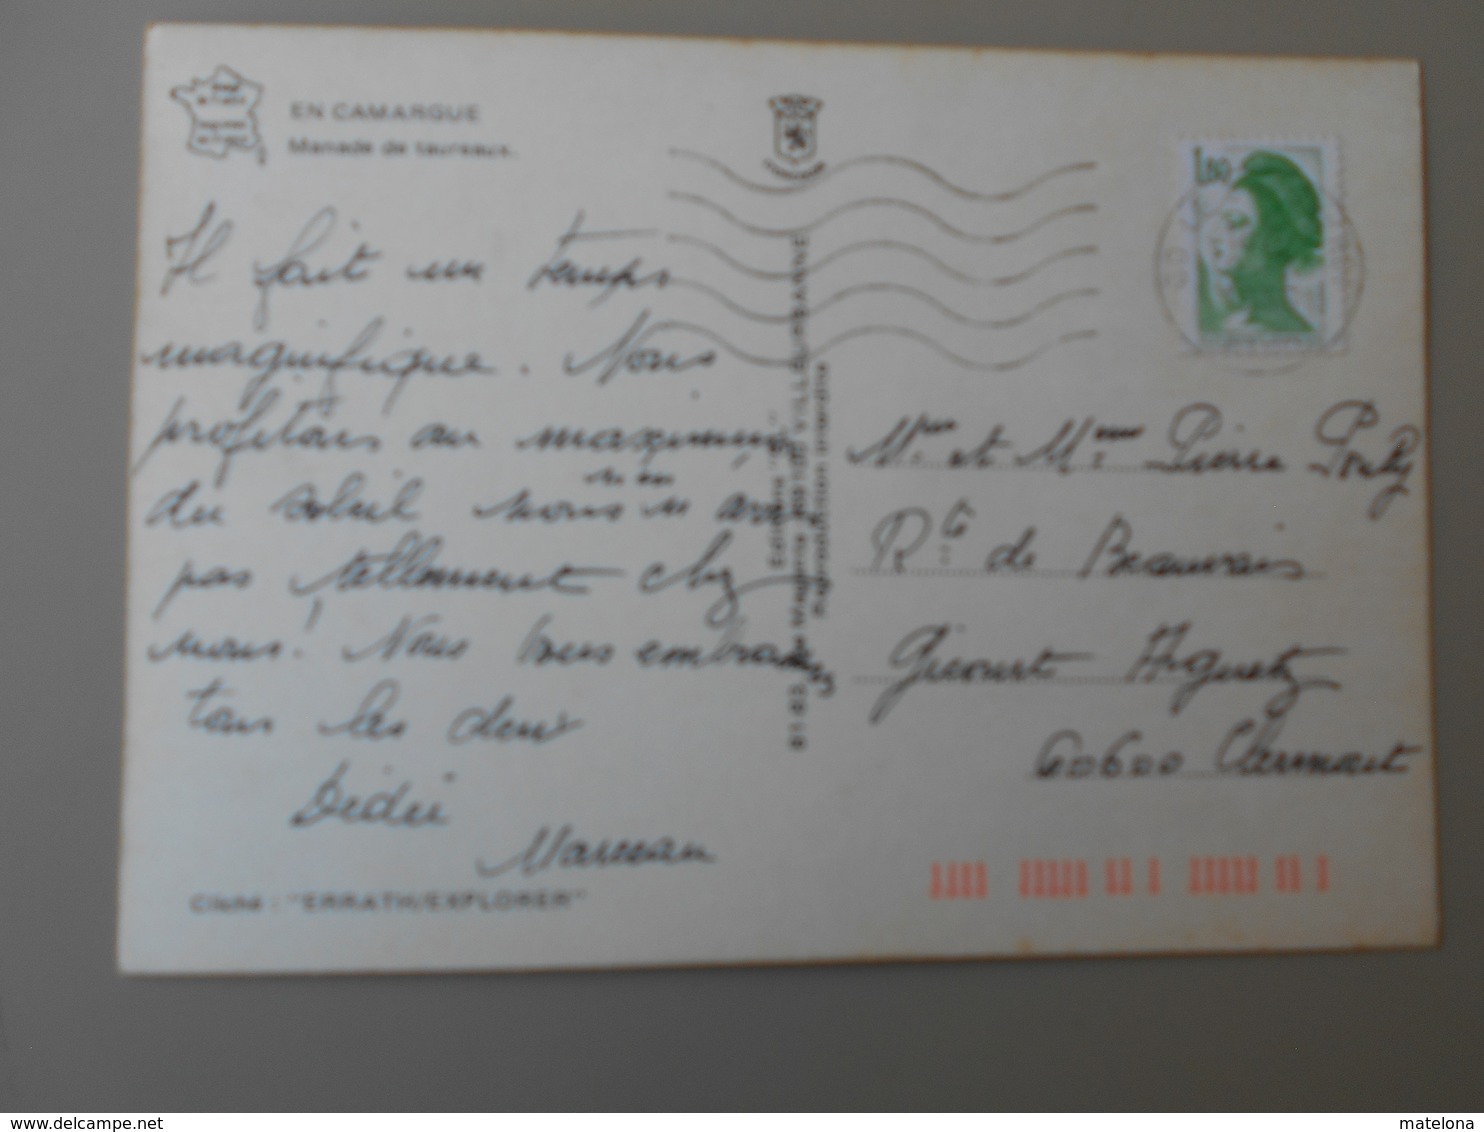 EN CAMARGUE
Manade de taureaux.
1,80
Il fait un temps
magnifique. Nous
profitons au maximum
du soleil nous n'en avons
pas tellement chez
nous! Nous vous embrassons
tous les deux
Dédée
Marceau
Cliché : "ERRATH/EXPLORER"
VILLEURBANNE
Reproduction interdite
Mr et Mme Pierre
Rte de Beauvais
60600 Clermont
delcampe.net
matelona